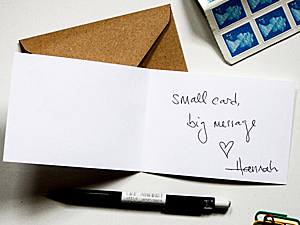 small card,
big message
♡
Hannah